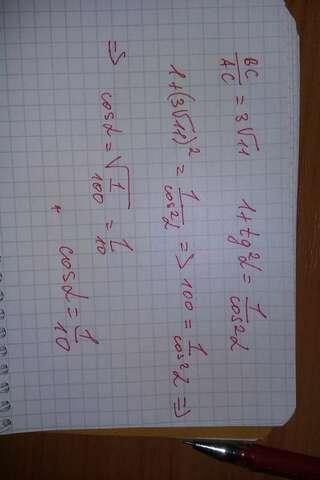 BC/AC = 3√11   1+tg²α = 1/cos²α
1+(3√11)² = 1/cos²α => 100 = 1/cos²α =>
=> cosα = √(1/100) = 1/10
cosα = 1/10